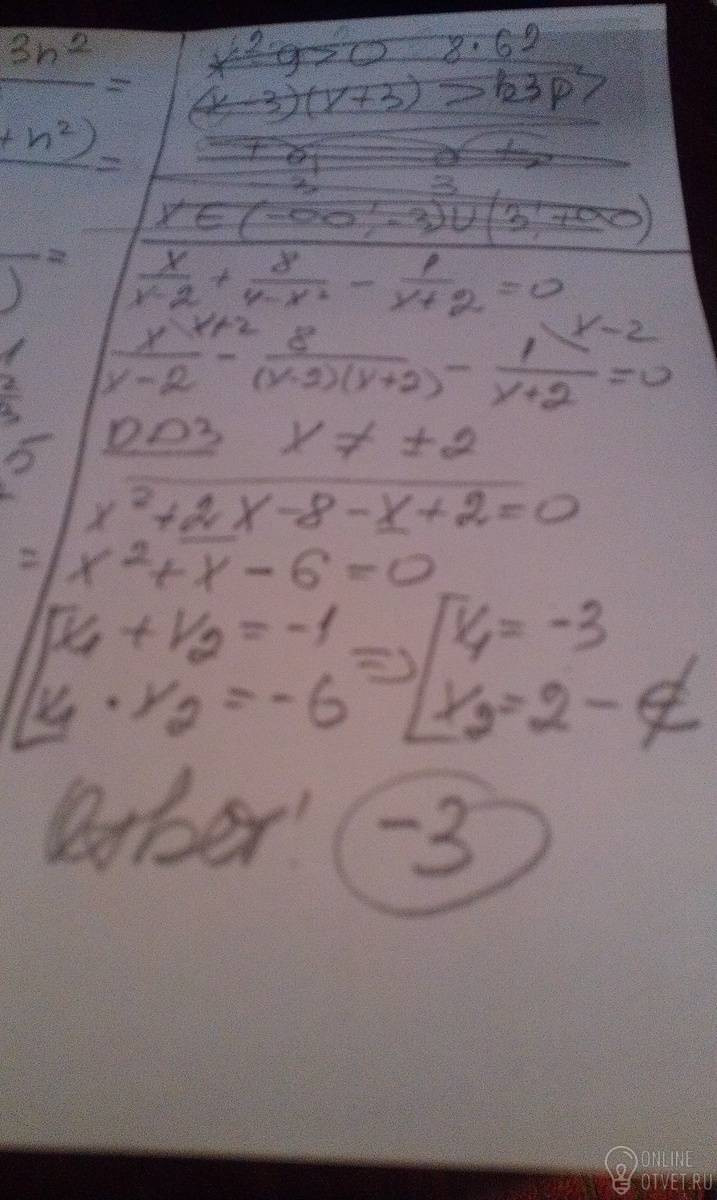 3n²
=
+ n²)
=
=
)
1
2
3
5
=
x² - 9 > 0   8.62
(x-3)(x+3) >
+ +
3 3
x ∈ (-∞; -3) ∪ (3; +∞)
x/(x-2) + 8/(4-x²) - 1/(x+2) = 0
x\x+2/(x-2) - 8/((x-2)(x+2)) - 1\x-2/(x+2) = 0
ОДЗ x ≠ ±2
x² + 2x - 8 - x + 2 = 0
x² + x - 6 = 0
[x₁ + x₂ = -1 => [x₁ = -3
[x₁ · x₂ = -6 [x₂ = 2 - ∉
Ответ: -3
ONLINE
OTVET.RU